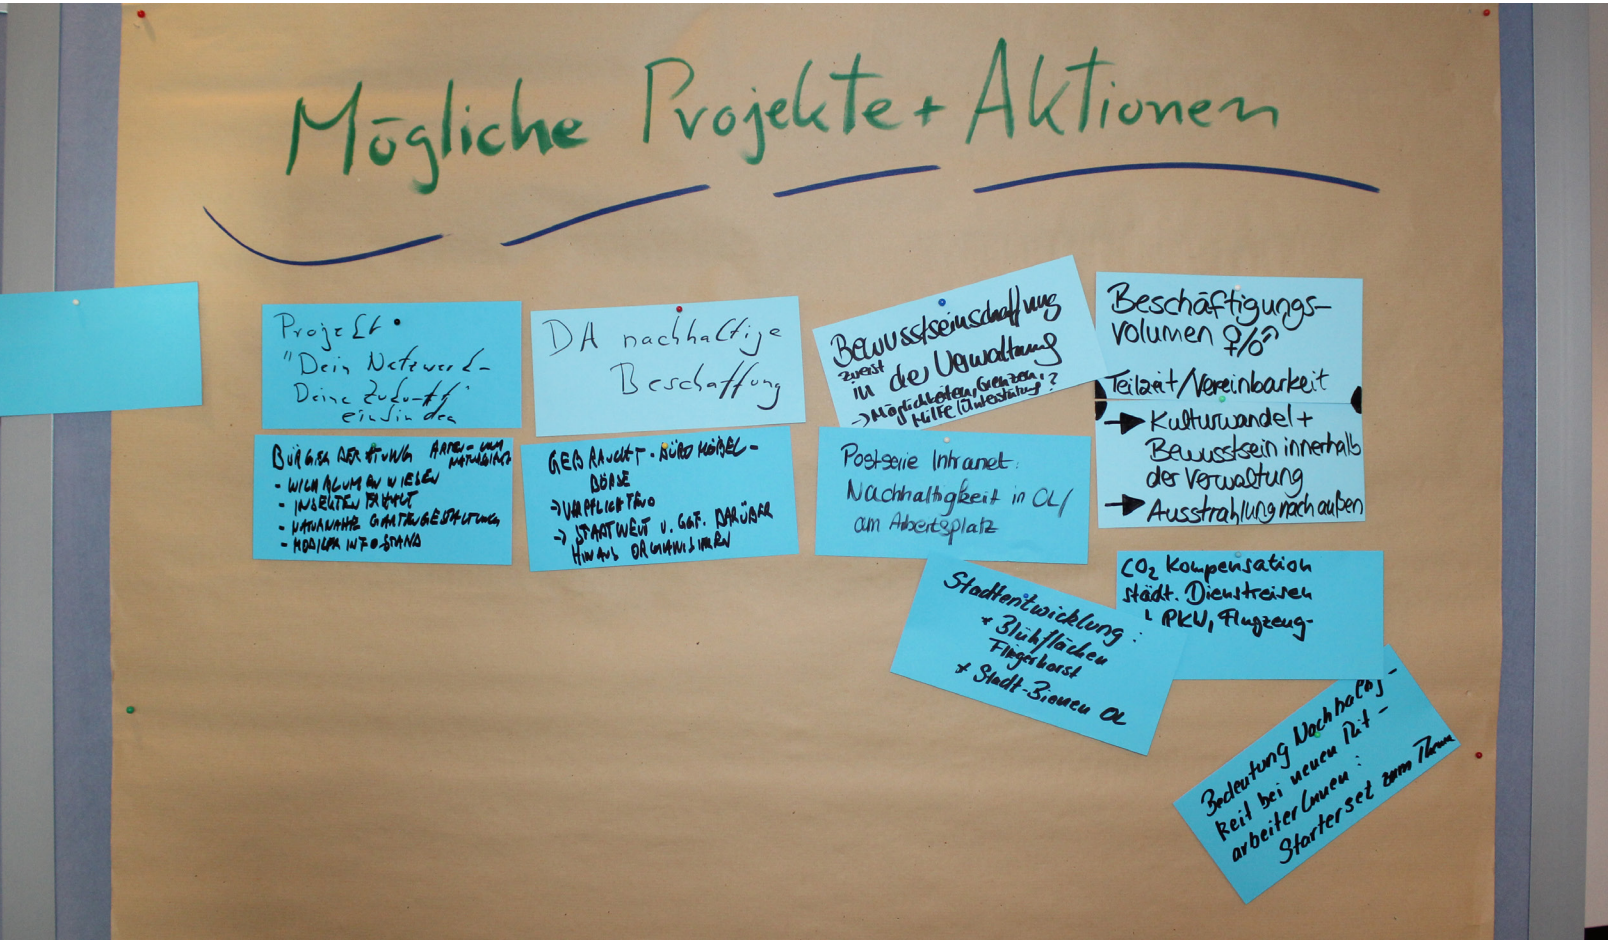 Mögliche Projekte + Aktionen
Projekt
"Dein Netzwerk-
Deine Zukunft"
einfinden
BÜRGERBERATUNG ARTEN- UND
NATURSCHUTZ
- WILDBLUMENWIESEN
- INSEKTENVIELFALT
- NATURNAHE GARTENGESTALTUNG
- MOBILER INFOSTAND
DA nachhaltige
Beschaffung
GEBRAUCHT-BÜROMÖBEL-
BÖRSE
-> VERPFLICHTEND
-> STADTWEIT U. GGF. DARÜBER
HINAUS ORGANISIEREN
Bewusstseinschaffung
zuerst
in der Verwaltung
-> Möglichkeiten, Grenzen,
Hilfe/Unterstützung?
Postserie Intranet:
Nachhaltigkeit in OL/
am Arbeitsplatz
Beschäftigungs-
volumen ♀/♂
Teilzeit/Vereinbarkeit
→ Kulturwandel +
Bewusstsein innerhalb
der Verwaltung
→ Ausstrahlung nach außen
Stadtentwicklung:
* Blühflächen
Fliegerhorst
* Stadt-Bienen OL
CO₂ Kompensation
städt. Dienstreisen
└ PKW, Flugzeug-
Bedeutung Nachhaltig-
keit bei neuen Mit-
arbeiterInnen:
Starterset zum Thema